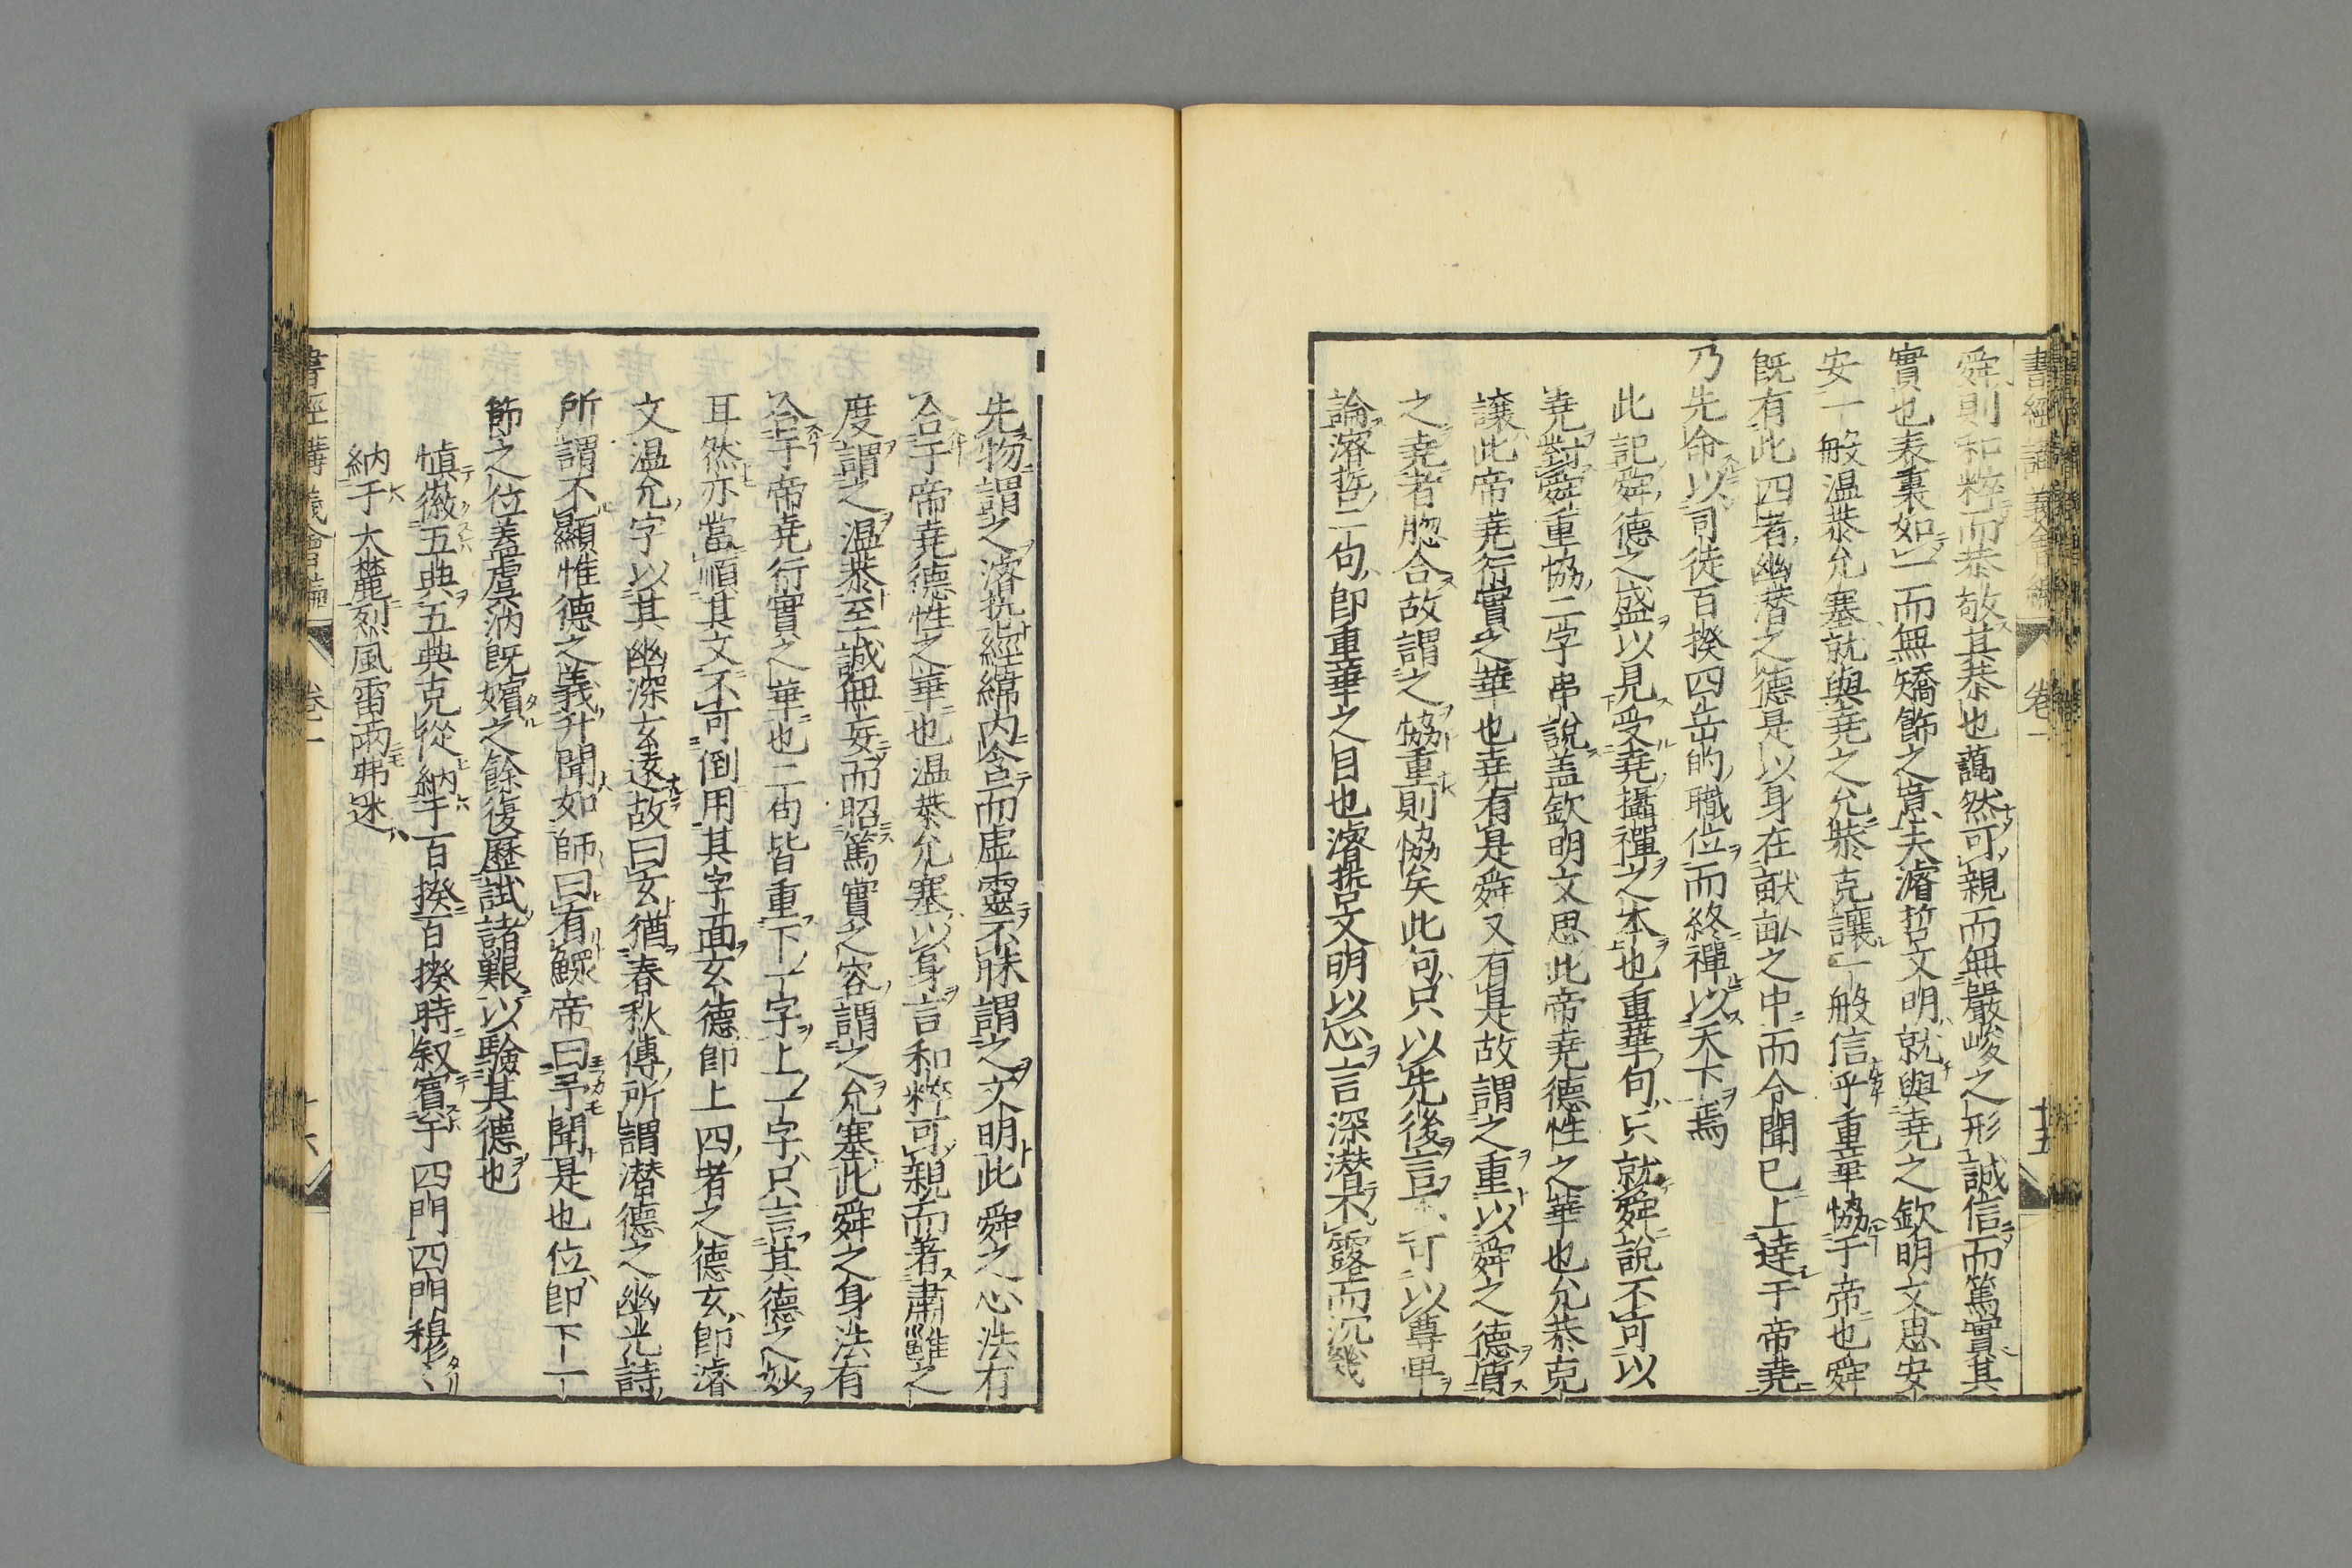 書經講義會編 卷一 十五
舜則和粹而恭敬其恭也藹然可親而無嚴峻之形誠信而篤實其
實也表裏如一而無矯飾之意夫濬哲文明就與堯之欽明文思安
安一般温恭允塞就與堯之允恭克讓一般信乎重華協于帝也舜
既有此四者幽潜之德是以身在畎畝之中而令聞已上達于帝堯
乃先命以司徒百揆四岳的職位而終禪以天下焉
此記舜德之盛以見受堯攝禪之本也重華句只就舜説不可以
堯對舜重協二字串說盖欽明文思此帝堯德性之華也允恭克
讓此帝堯行實之華也堯有是舜又有是故謂之重以舜之德質
之堯者脗合故謂之協重則協矣此句只以先後言不可以尊卑
論濬哲二句即重華之目也濬哲文明以心言深潜不露而沉幾
先物謂之濬哲經緯内含而虚靈不昧謂之文明此舜之心法有
合于帝堯德性之華也温恭允塞以身言和粹可親而著肅雝之
度謂之温恭至誠無妄而昭篤實之容謂之允塞此舜之身法有
合于帝堯行實之華也二句皆重下一字上一字只言其德之妙
耳然亦當順其文不可倒用其字面玄德即上四者之德玄即濬
文温允字以其幽深玄遠故曰玄猶春秋傳所謂潜德之幽光詩
所謂不顯惟德之義升聞如師曰有鰥帝曰予聞是也位即下一
節之位盖虞汭既嬪之餘復歷試諸艱以驗其德也
愼徽五典五典克從納于百揆百揆時叙賓于四門四門穆〻
納于大麓烈風雷雨弗迷
書經講義會編 卷一 十六